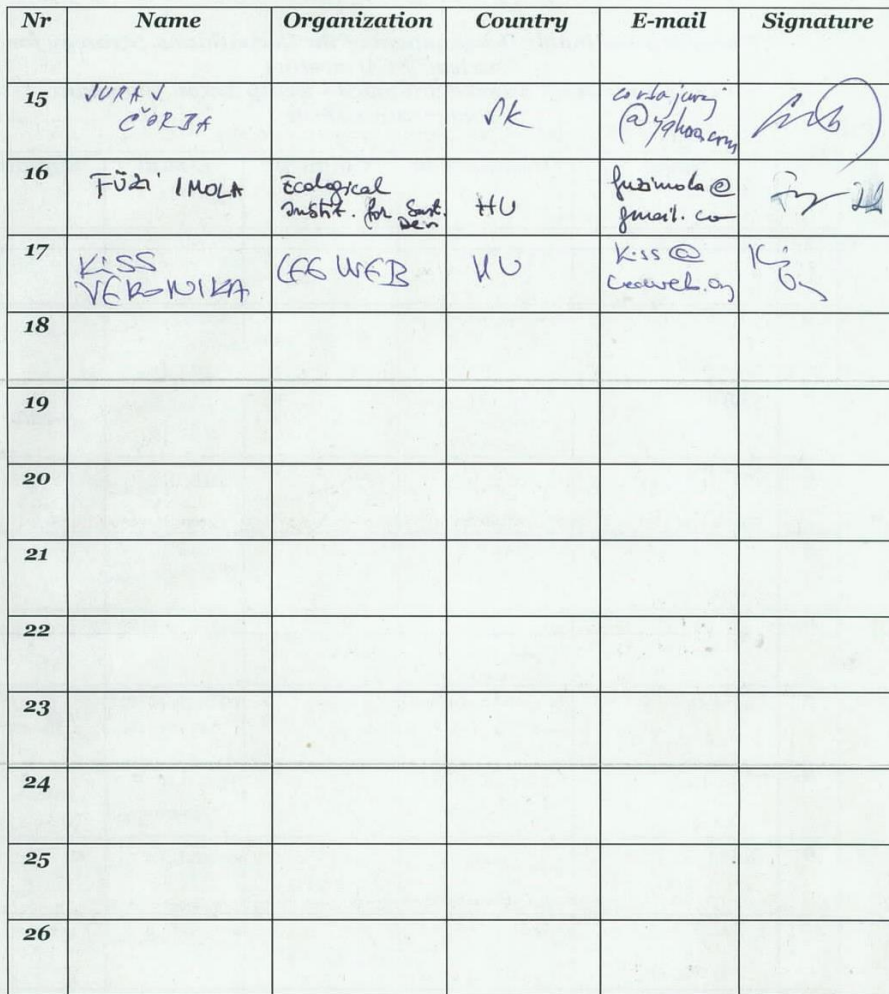 Nr Name Organization Country E-mail Signature
15 JURAJ ČORBA SK corbajuraj@yahoo.com
16 FŰZI IMOLA Ecological Instit. for Sust. Dev HU fuzimola@gmail.co
17 KISS VERONIKA CEEWEB HU kiss@ceeweb.org
18
19
20
21
22
23
24
25
26